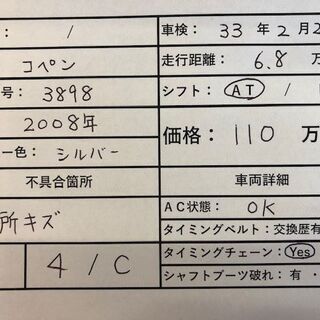 ： /
車検： 33 年 2 月 2
コペン
走行距離： 6.8 万
号： 3898
シフト： AT /
2008年
価格： 110 万
ー色： シルバー
不具合箇所
車両詳細
所キズ
AC状態： OK
タイミングベルト：交換歴有
4 / C
タイミングチェーン： Yes
シャフトブーツ破れ： 有 ・